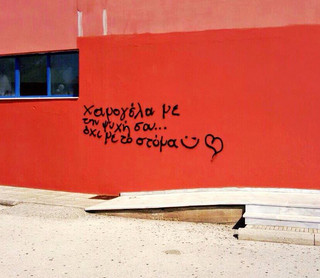 χαμογέλα με
την ψυχή σου...
όχι με το στόμα